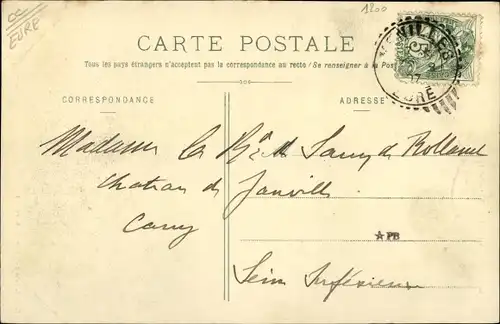 EURE
1200
CARTE POSTALE
Tous les pays étrangers n'acceptent pas la correspondance au recto (Se renseigner à la Post
CORRESPONDANCE
ADRESSE
VILLES
07
EURE
Madame la de Rolland
Chateau de Janville
Cany
PB
Seine Inférieure